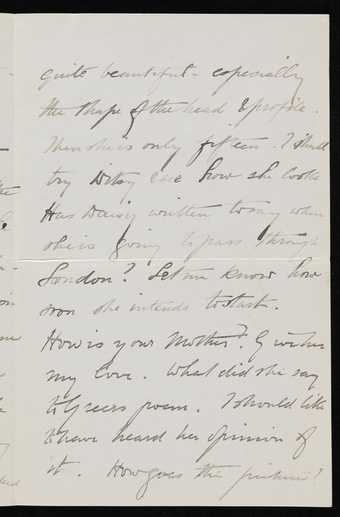 quite beautiful - especially
the shape of the head & profile.
Then she is only fifteen. I shall
try & see how she looks
Has Daisy written to say when
she is going to pass through
London? Let me know how
soon she intends to start.
How is your Mother? Give her
my love. What did she say
to poem. I should like
to have heard her opinion of
it. How goes the picture?